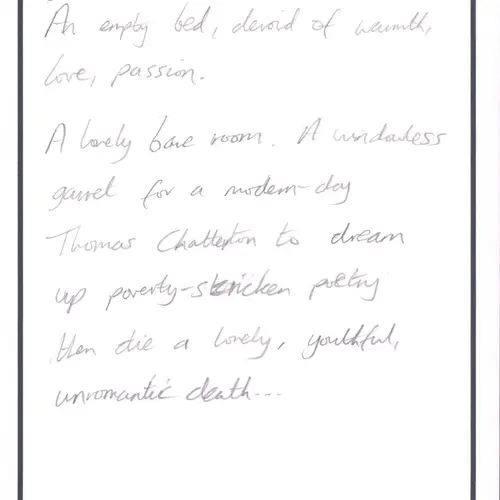 An empty bed, devoid of warmth,
love, passion.
A lonely bare room. A windowless
garret for a modern-day
Thomas Chatterton to dream
up poverty-stricken poetry
then die a lonely, youthful,
unromantic death...